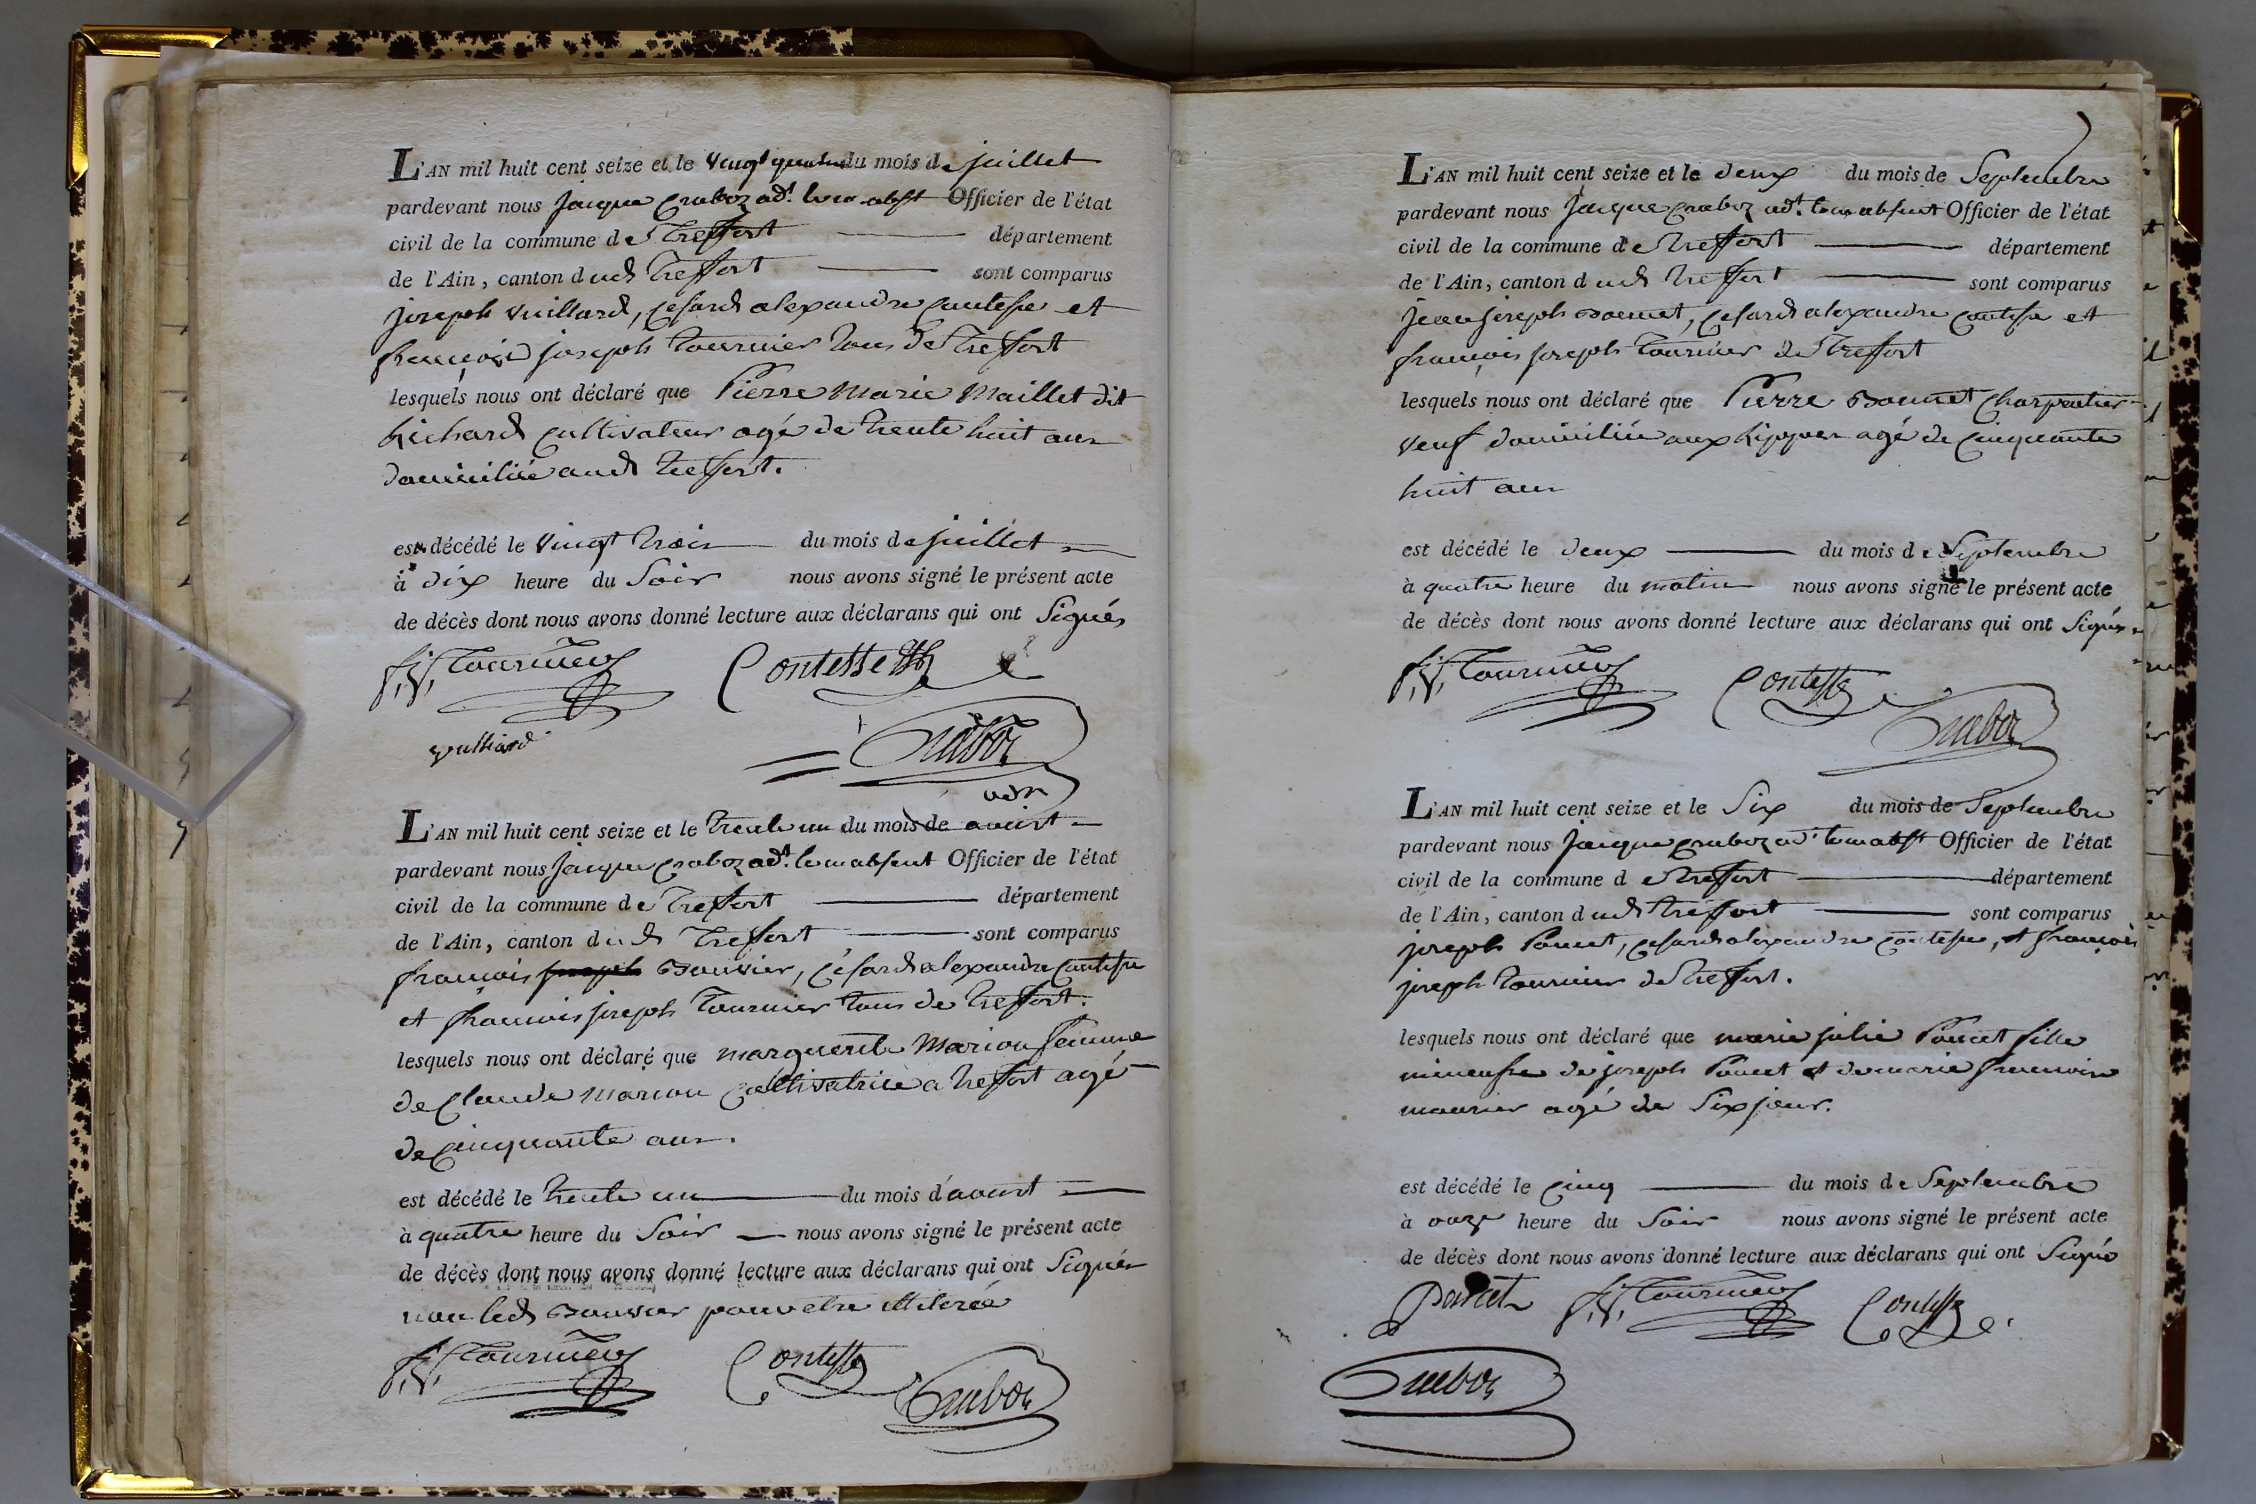 L'AN mil huit cent seize et le vingt quatre du mois de juillet
pardevant nous jacque Craboz adt. le m. absent Officier de l'état
civil de la commune de Treffort département
de l'Ain, canton dudt Treffort sont comparus
joseph vuillard, Cesard alexandre Contesse et
françois joseph tournier tous de Treffort
lesquels nous ont déclaré que Pierre Marie Maillet dit
Richard Cultivateur agé de trente huit ans
domicilié audt treffort.
est décédé le vingt trois du mois de juillet
à dix heure du Soir nous avons signé le présent acte
de décès dont nous avons donné lecture aux déclarans qui ont Signés
f. j. Tournier Contesse
vulliard Craboz
adt
L'AN mil huit cent seize et le trente un du mois de aoust
pardevant nous jacque Craboz adt. le m absent Officier de l'état
civil de la commune de Treffort département
de l'Ain, canton dudt Treffort sont comparus
françois joseph Bouvier, Césard alexandre Contesse
et françois joseph Tournier tous de treffort.
lesquels nous ont déclaré que marguerite Marion femme
de Claude Marion Cultivatrice a treffort agé
de Cinquante ans.
est décédé le trente un du mois d'aoust
à quatre heure du Soir nous avons signé le présent acte
de décès dont nous avons donné lecture aux déclarans qui ont Signés
non ledt Bouvier pour etre illiteré
f. j. Tournier Contesse Craboz
L'AN mil huit cent seize et le deux du mois de Septembre
pardevant nous Jacque Craboz adt. le m absent Officier de l'état
civil de la commune de Treffort département
de l'Ain, canton dudt treffort sont comparus
jean joseph Bonnet, Cesard alexandre Contesse et
françois joseph tournier de Treffort
lesquels nous ont déclaré que Pierre Bonnet Charpentier
veuf domicilié aux agé de Cinquante
huit ans
est décédé le deux du mois de Septembre
à quatre heure du matin nous avons signé le présent acte
de décès dont nous avons donné lecture aux déclarans qui ont Signés
f. j. Tournier Contesse Craboz
L'AN mil huit cent seize et le Six du mois de Septembre
pardevant nous jacque Craboz adt le m abst Officier de l'état
civil de la commune de Treffort département
de l'Ain, canton dudt treffort sont comparus
joseph Poncet, Cesard alexandre Contesse, et françois
joseph tournier de Treffort.
lesquels nous ont déclaré que marie julie Poncet fille
mineure de joseph Poncet et de marie françoise
mounier agé de Six jour.
est décédé le Cinq du mois de Septembre
à onze heure du Soir nous avons signé le présent acte
de décès dont nous avons donné lecture aux déclarans qui ont Signé
Poncet f. j. Tournier Contesse
Craboz